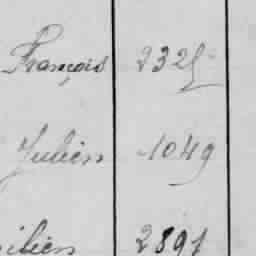 François 2325
Julien 1049
2891